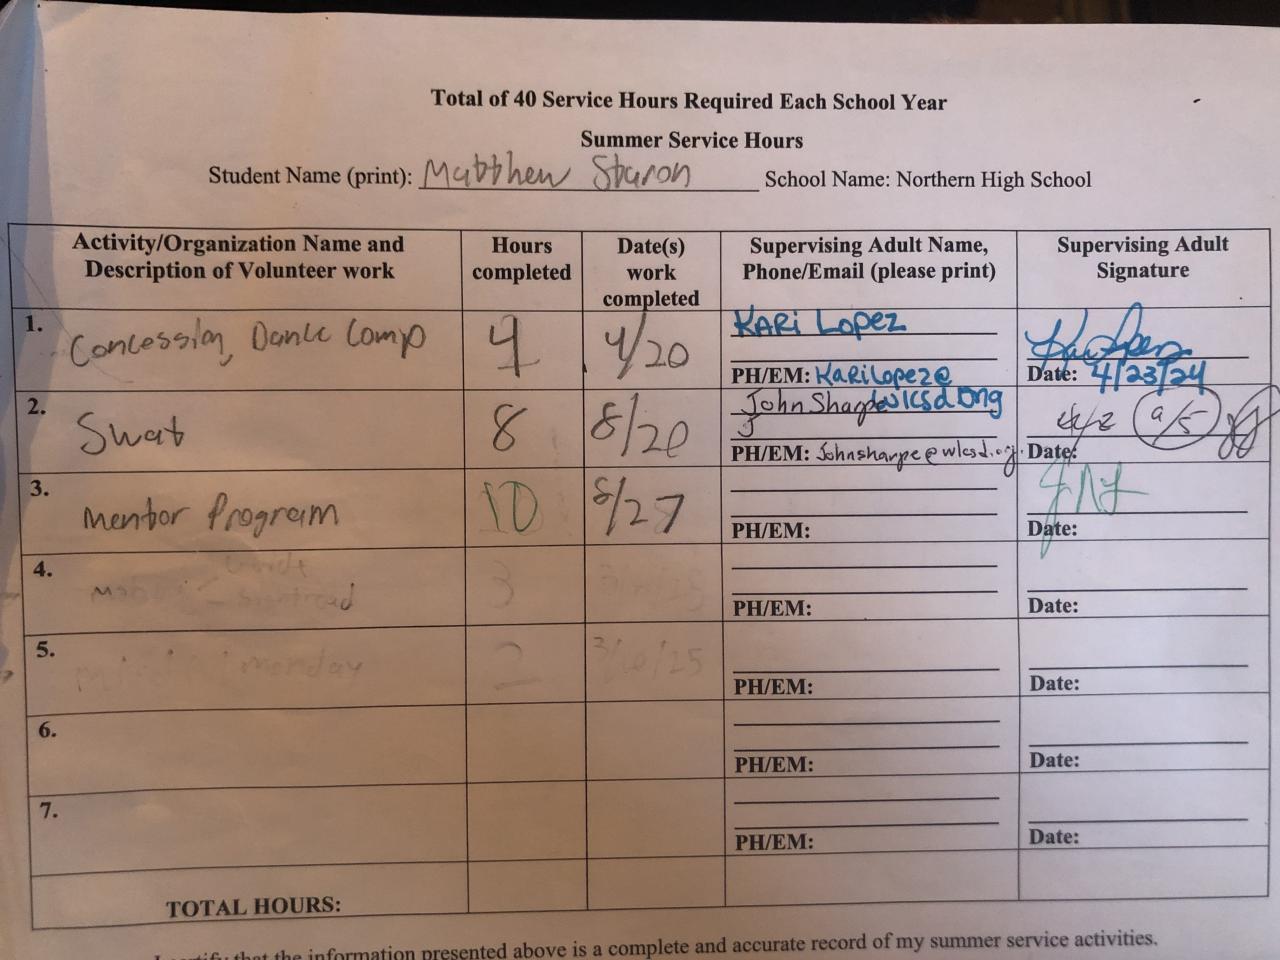 Total of 40 Service Hours Required Each School Year
Summer Service Hours
Student Name (print): Matthew Staron School Name: Northern High School
Activity/Organization Name and Description of Volunteer work
Hours completed
Date(s) work completed
Supervising Adult Name, Phone/Email (please print)
Supervising Adult Signature
1. Concession, Dance Camp
4
4/20
KARi LOPEZ
PH/EM: KARiLopez@
wlcsd.org
Date: 4/23/24
2. Swat
8
8/20
John Sharpe
PH/EM: Johnsharpe@wlcsd.org.
9/5
Date:
3. Mentor Program
10
8/27
PH/EM:
Date:
4.
3
PH/EM:
Date:
5. monday
2
3/10/25
PH/EM:
Date:
6.
PH/EM:
Date:
7.
PH/EM:
Date:
TOTAL HOURS:
that the information presented above is a complete and accurate record of my summer service activities.